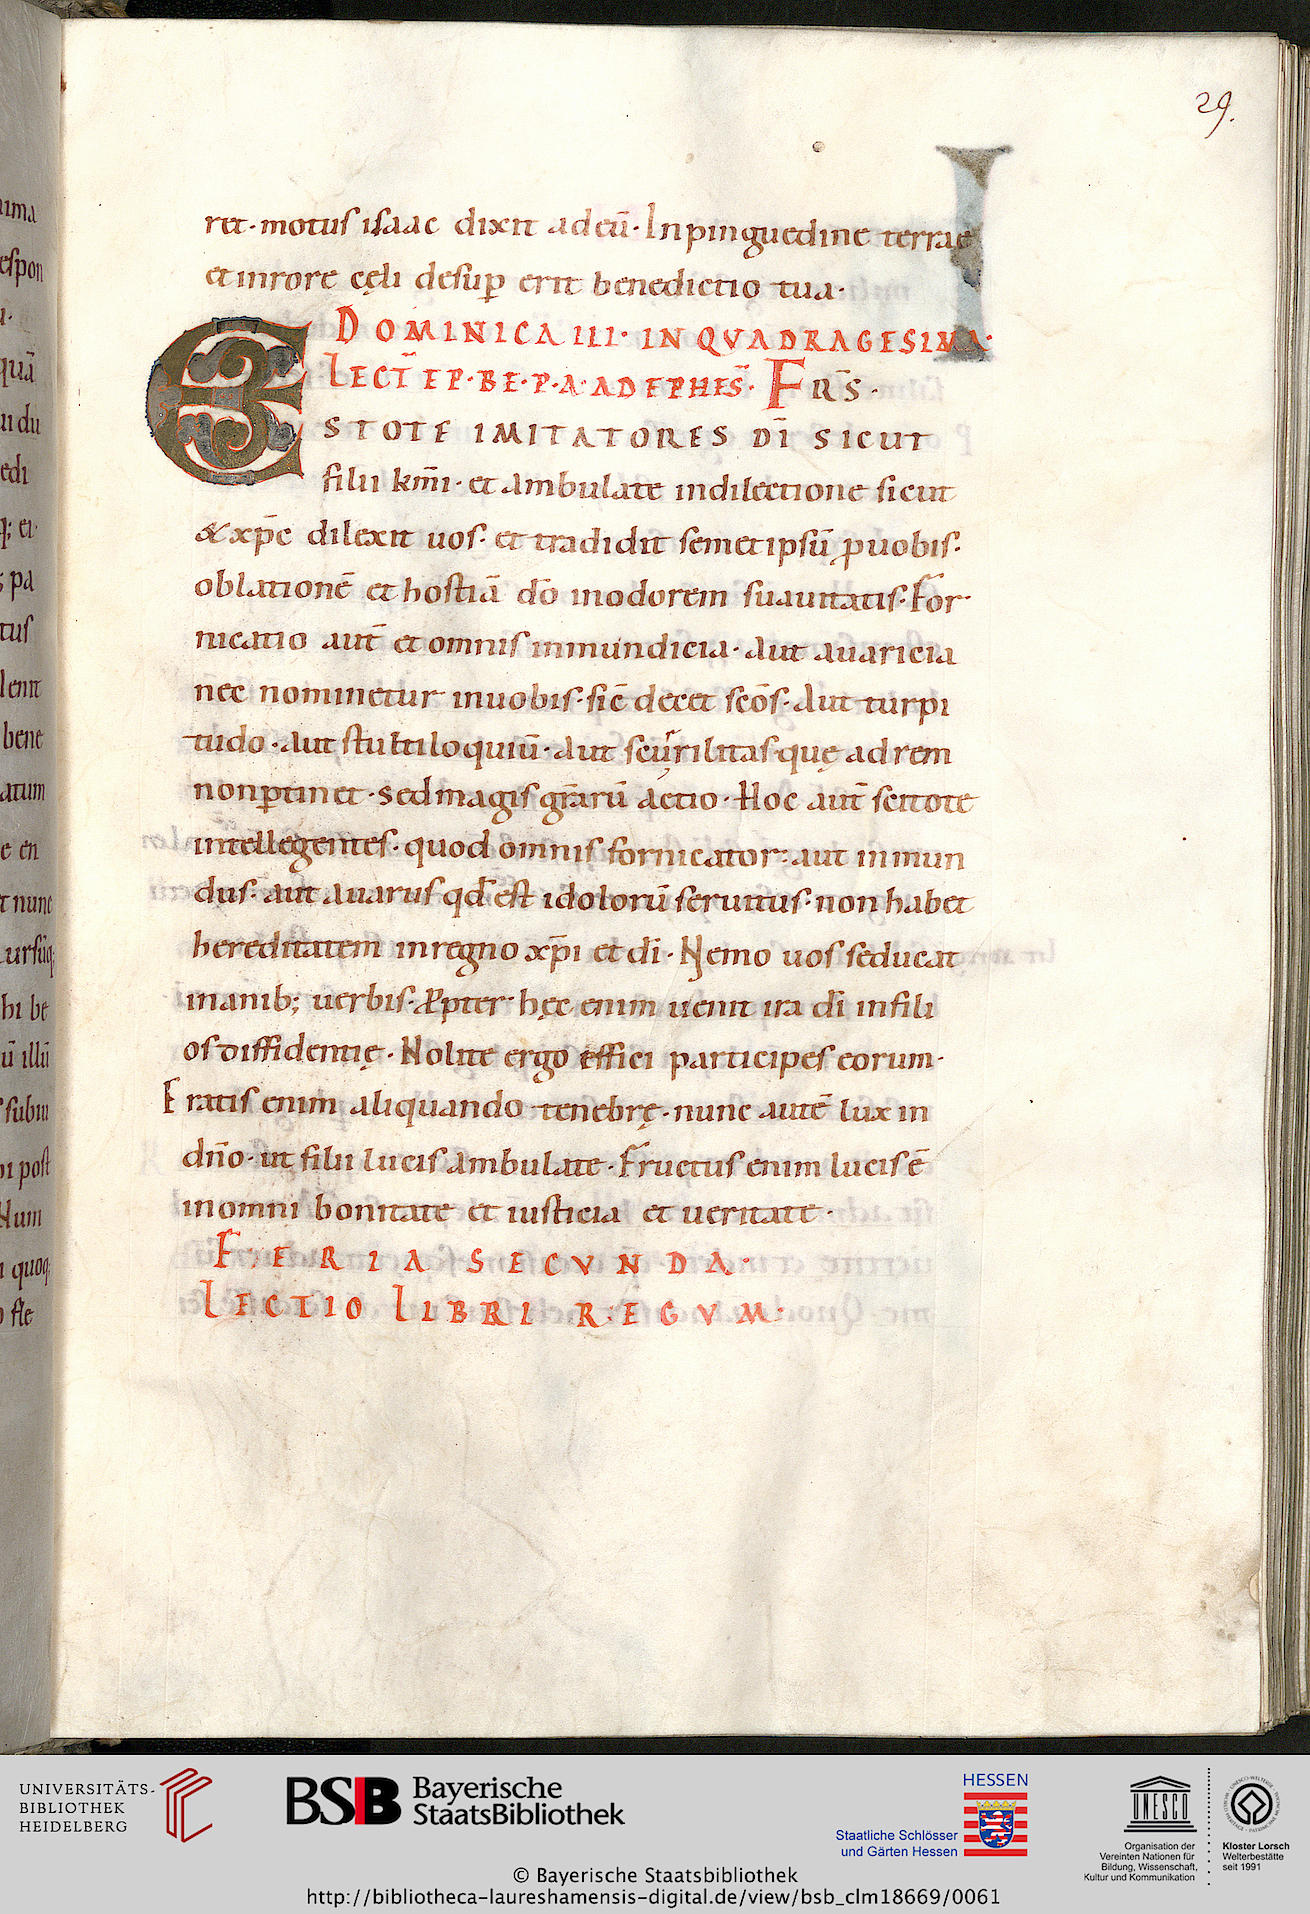 29.
ret· motus isaac dixit ad eū· In pinguedine terrae
et in rore cęli desup̱ erit benedictio tua·
DOMINICA III· IN QVADRAGESIMA·
LECT̄ EP·BE·P·A·AD EPHES̄· FRS̄·
ESTOTE IMITATORES DĪ SICUT
filii km̄i· et ambulate in dilectione sicut
& xp̄c dilexit uos· et tradidit semetipsū ꝓ uobis·
oblationē et hostiā dō in odorem suauitatis· For
nicatio aut̄ et omnis inmundicia· aut auaricia
nec nominetur in uobis· sic̄ decet sc̄os· aut turpi
tudo· aut stultiloquiū· aut scurrilitas· quę ad rem
non ꝑtinet· sed magis gr̄arū actio· Hoc aut̄ scitote
intellegentes· quod omnis fornicator· aut inmun
dus· aut auarus qd̄ est idolorū seruitus· non habet
hereditatem in regno xp̄i et dī· Nemo uos seducat
inanib; uerbis· Ꝓpter hęc enim uenit ira dī in fili
os diffidentię· Nolite ergo effici participes eorum·
Eratis enim aliquando tenebrę· nunc autē lux in
dn̄o· ut filii lucis ambulate· Fructus enim lucis ē
in omni bonitate et iusticia et ueritate·
FERIA SECVNDA·
LECTIO LIBRI REGVM·
ima
espon
quā
ui du
edi
pa
tus
lenit
bene
atum
e en
t nunc
ursūq;
hi be
ū illū
subiu
i post
Num
i quoq;
fle
UNIVERSITÄTS-
BIBLIOTHEK
HEIDELBERG
BSB Bayerische
StaatsBibliothek
HESSEN
Staatliche Schlösser
und Gärten Hessen
UNESCO
Organisation der
Vereinten Nationen für
Bildung, Wissenschaft,
Kultur und Kommunikation
Kloster Lorsch
Welterbestätte
seit 1991
© Bayerische Staatsbibliothek
http://bibliotheca-laureshamensis-digital.de/view/bsb_clm18669/0061